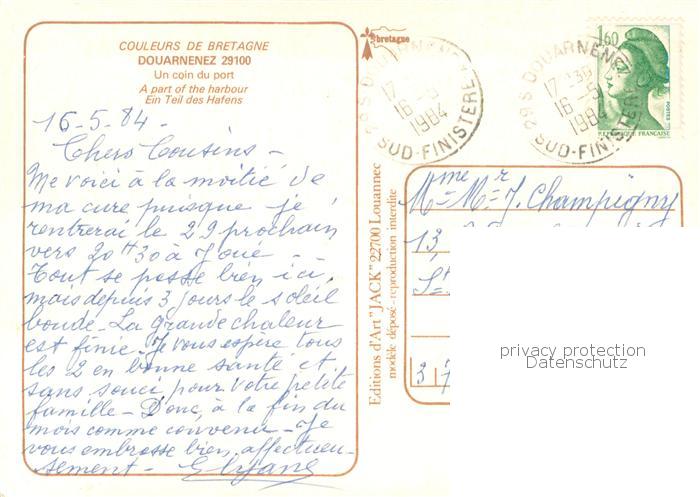 COULEURS DE BRETAGNE
DOUARNENEZ 29100
Un coin du port
A part of the harbour
Ein Teil des Hafens
16-5.84-
Chers Cousins-
Me voici à la moitié de
ma cure puisque je
rentrerai le 29 prochain
vers 20H30 à Joué-
Tout se passe bien ici,
mais depuis 3 jours le soleil
boude- La grande chaleur
est finie. Je vous espère tous
les 2 en bonne santé et
sans souci pour votre petite
famille- Donc, à la fin du
mois comme convenu- Je
vous embrasse bien affectueu-
sement- Elyane
bretagne
29S DOUARNENEZ
17-30
16-5
1984
SUD-FINISTERE
29S DOUARNENEZ
17-30
16-5
1984
SUD-FINISTERE
1,60
POSTES
REPUBLIQUE FRANÇAISE
Editions d'Art "JACK" 22700 Louannec
modèle déposé - reproduction interdite
Mme Mr J. Champigny
13,
St
37
privacy protection
Datenschutz